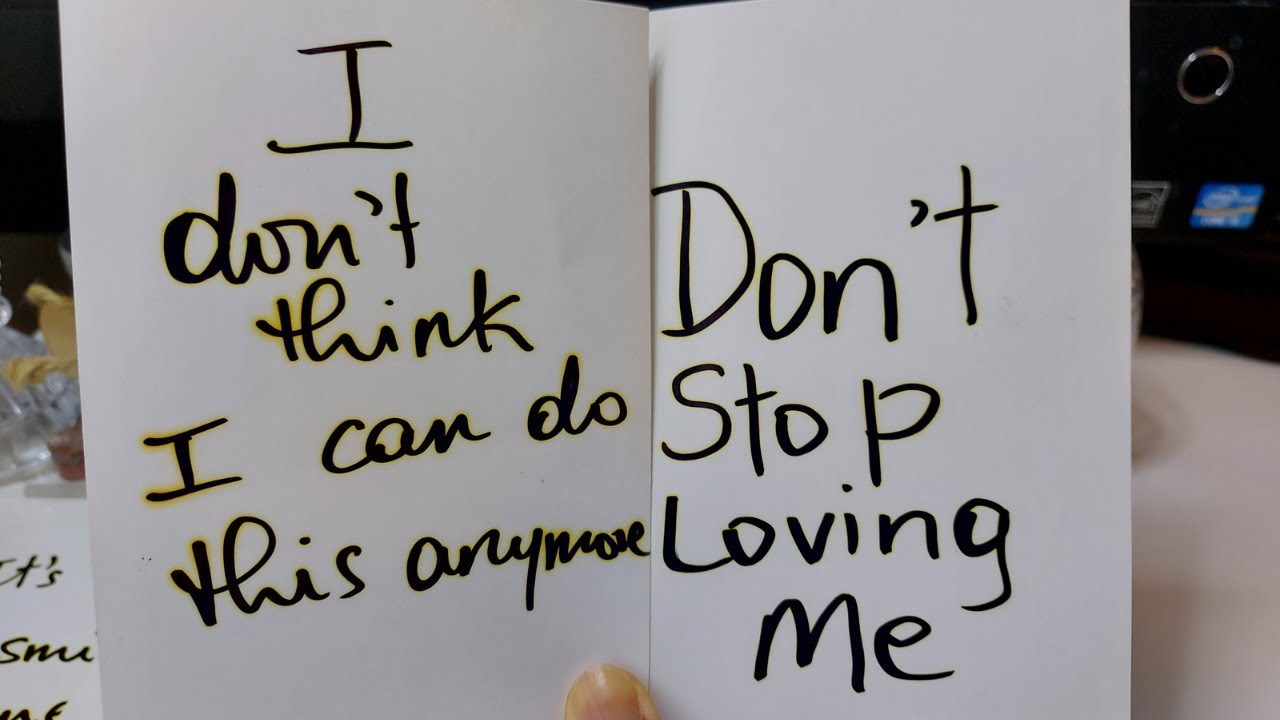 I
don't
think
I can do
this anymore
Don't
Stop
Loving
Me
It's